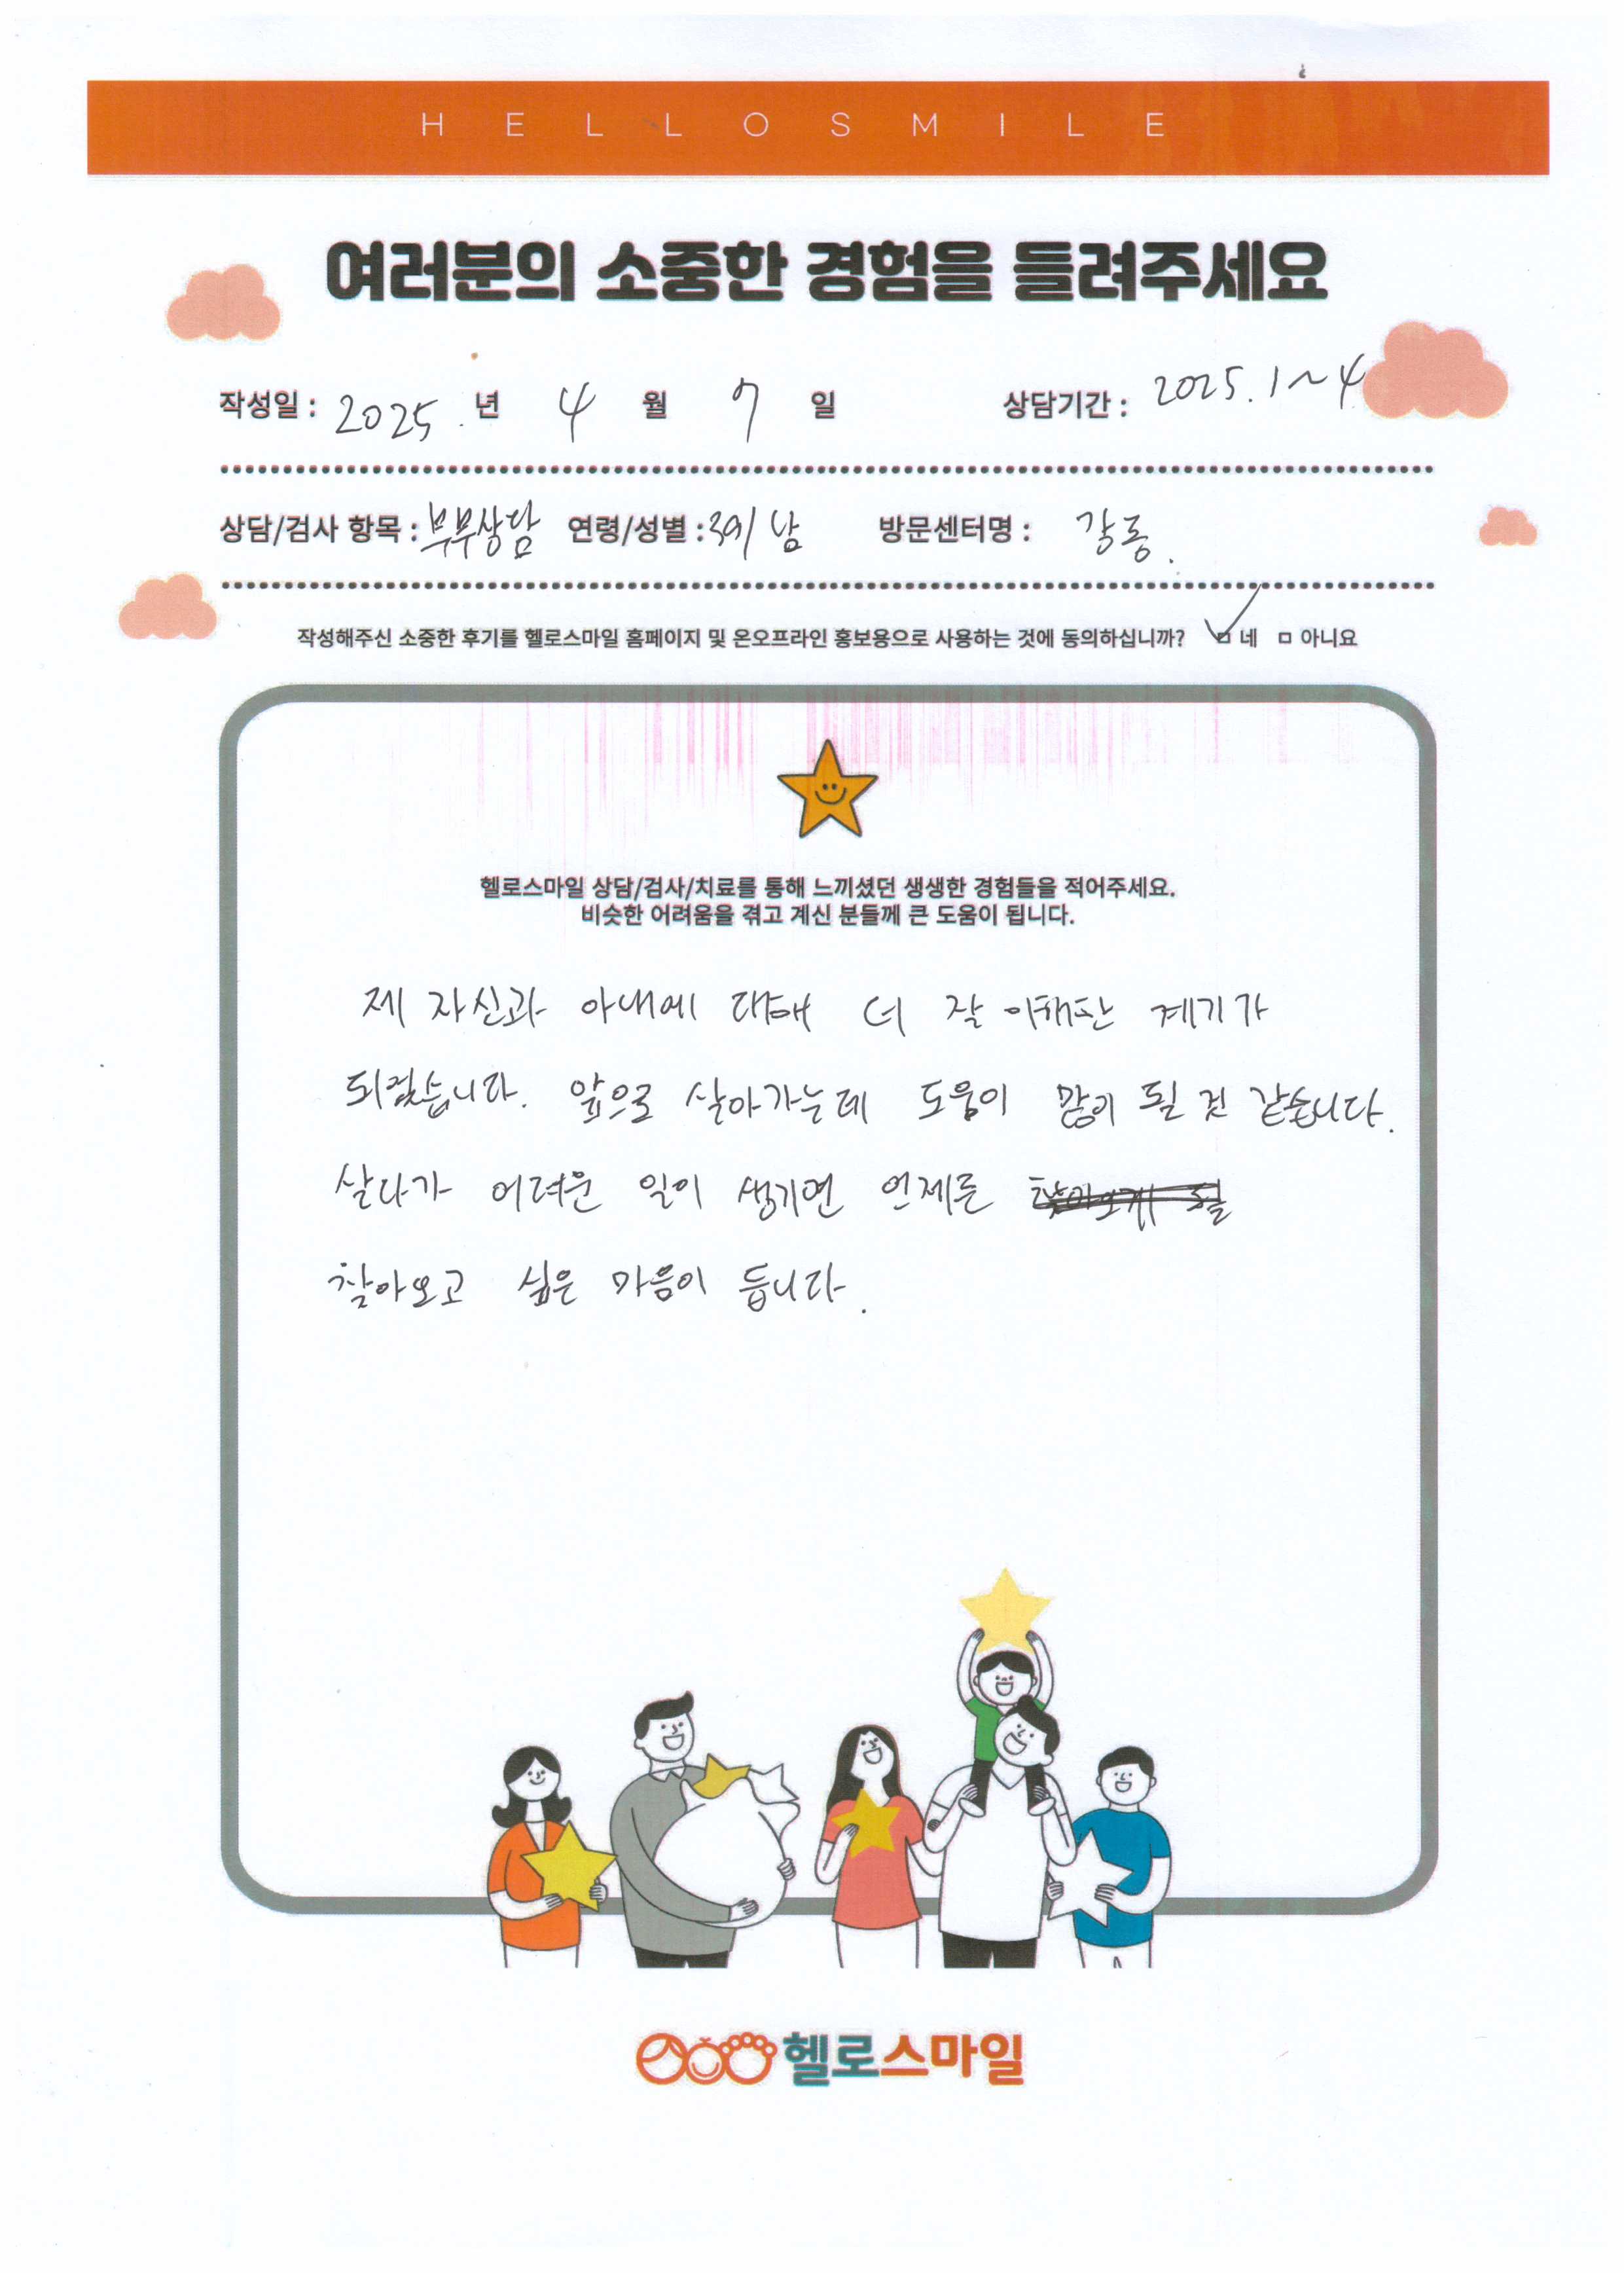 HELLOSMILE
여러분의 소중한 경험을 들려주세요
작성일 : 2025. 년 4 월 7 일 상담기간 : 2025. 1~4
상담/검사 항목 : 부부상담 연령/성별 : 39/ 남 방문센터명 : 강동.
작성해주신 소중한 후기를 헬로스마일 홈페이지 및 온오프라인 홍보용으로 사용하는 것에 동의하십니까? 네 아니요
헬로스마일 상담/검사/치료를 통해 느끼셨던 생생한 경험들을 적어주세요.
비슷한 어려움을 겪고 계신 분들께 큰 도움이 됩니다.
제 자신과 아내에 대해 더 잘 이해한 계기가
되었습니다. 앞으로 살아가는데 도움이 많이 될 것 같습니다.
살다가 어려운 일이 생기면 언제든
찾아오고 싶은 마음이 듭니다.
헬로스마일